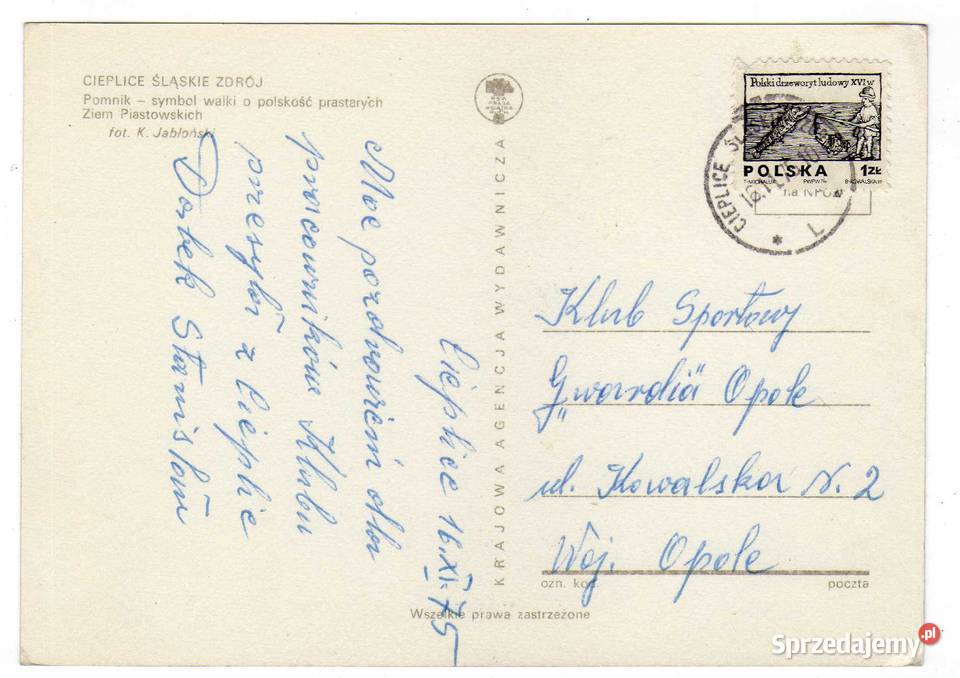 CIEPLICE ŚLĄSKIE ZDRÓJ
Pomnik – symbol walki o polskość prastarych
Ziem Piastowskich
fot. K. Jabłoński
Cieplice 16.XI.75
Moe pozdrowieni dla
pracowników Klubu
przesyła z Cieplic
Dorbek Stanisław
KRAJOWA AGENCJA WYDAWNICZA
Polski drzeworyt ludowy XVI w
POLSKA 1 ZŁ
CIEPLICE ŚL
Klub Sportowy
„Gwardia" Opole
ul. Kowalska N. 2
Woj. Opole
ozn. kod. poczta
Wszelkie prawa zastrzeżone
Sprzedajemy.pl